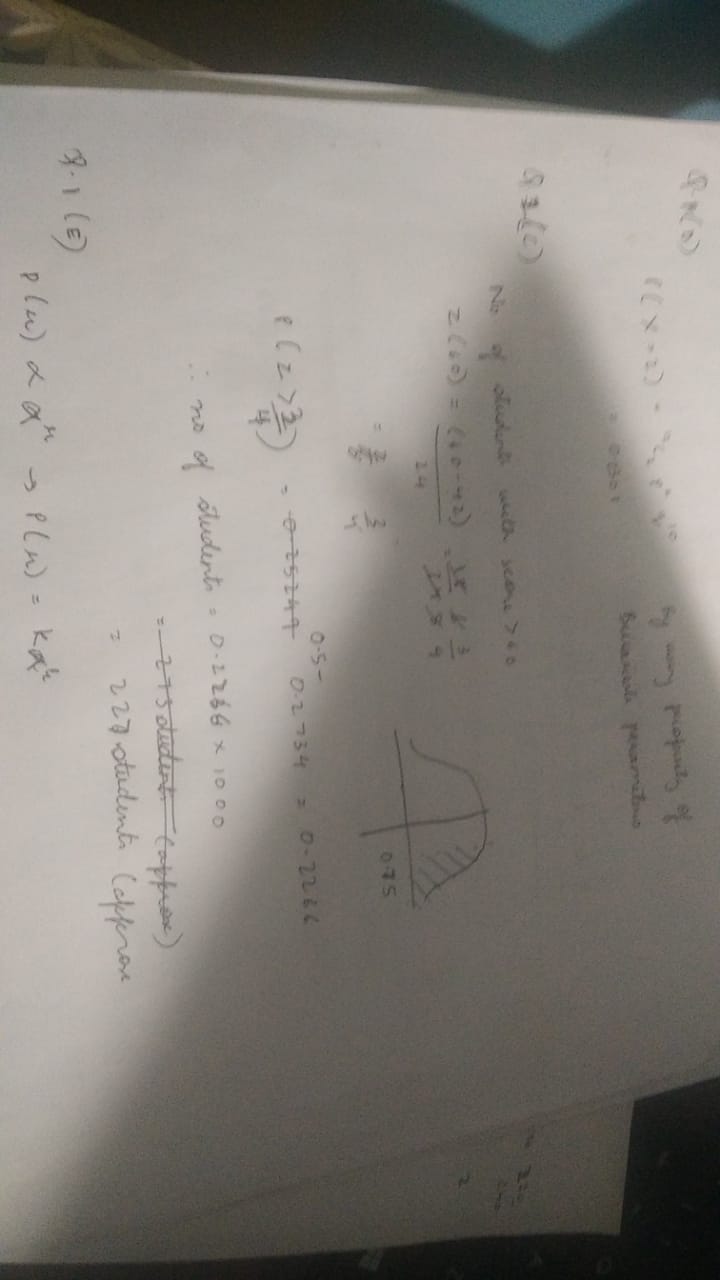 Q.1(D)
P(X=2) = ¹²C₂ p² q¹⁰ By using property of
= 0.301 Binomial parameters
Q.1(C)
No. of students with score > 60
Z(60) = (60-42)/24 = 18/24 3/4
= 3/4
0.75
P(Z > 3/4) = ~~0.25249~~ 0.5- 0.2734 = 0.2266
∴ no of students = 0.2266 × 1000
= ~~273 students (approx)~~
= 227 students (approx
Q.1(E)
P(x) ∝ αˣ → P(x) = kαˣ